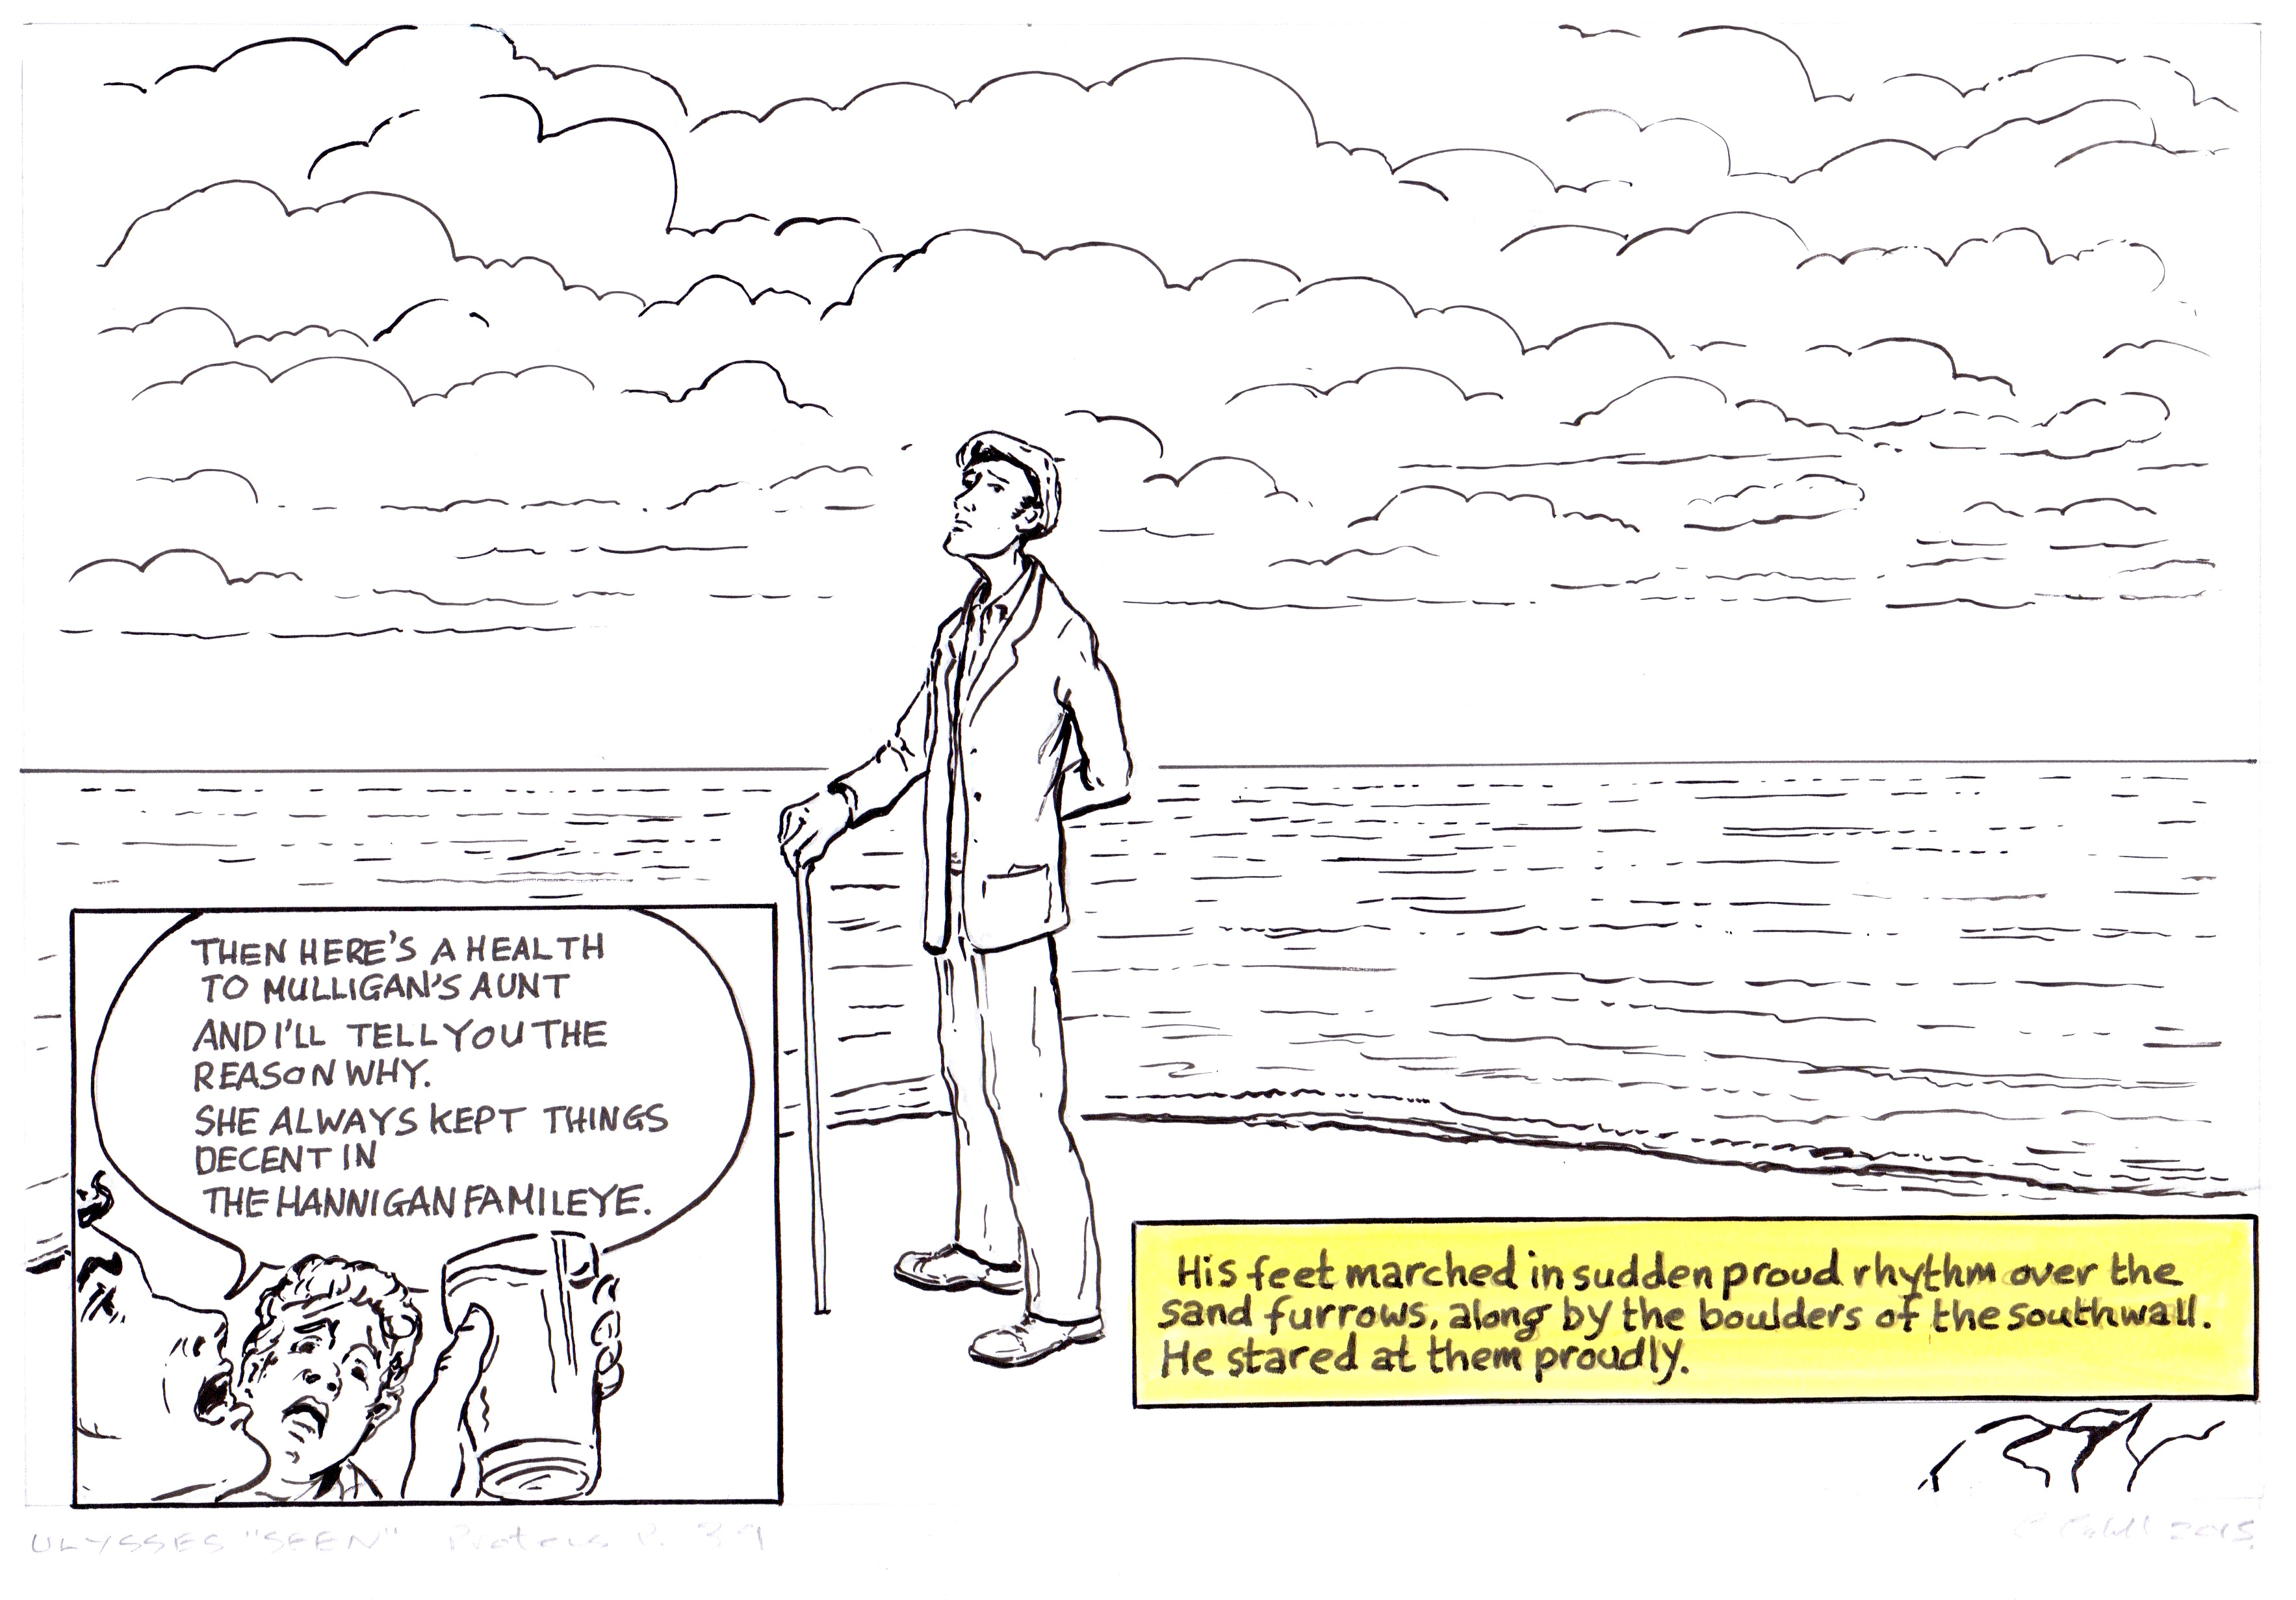 THEN HERE'S A HEALTH
TO MULLIGAN'S AUNT
AND I'LL TELL YOU THE
REASON WHY.
SHE ALWAYS KEPT THINGS
DECENT IN
THE HANNIGAN FAMILEYE.
His feet marched in sudden proud rhythm over the
sand furrows, along by the boulders of the southwall.
He stared at them proudly.
ULYSSES "SEEN" Proteus P. 39
2015